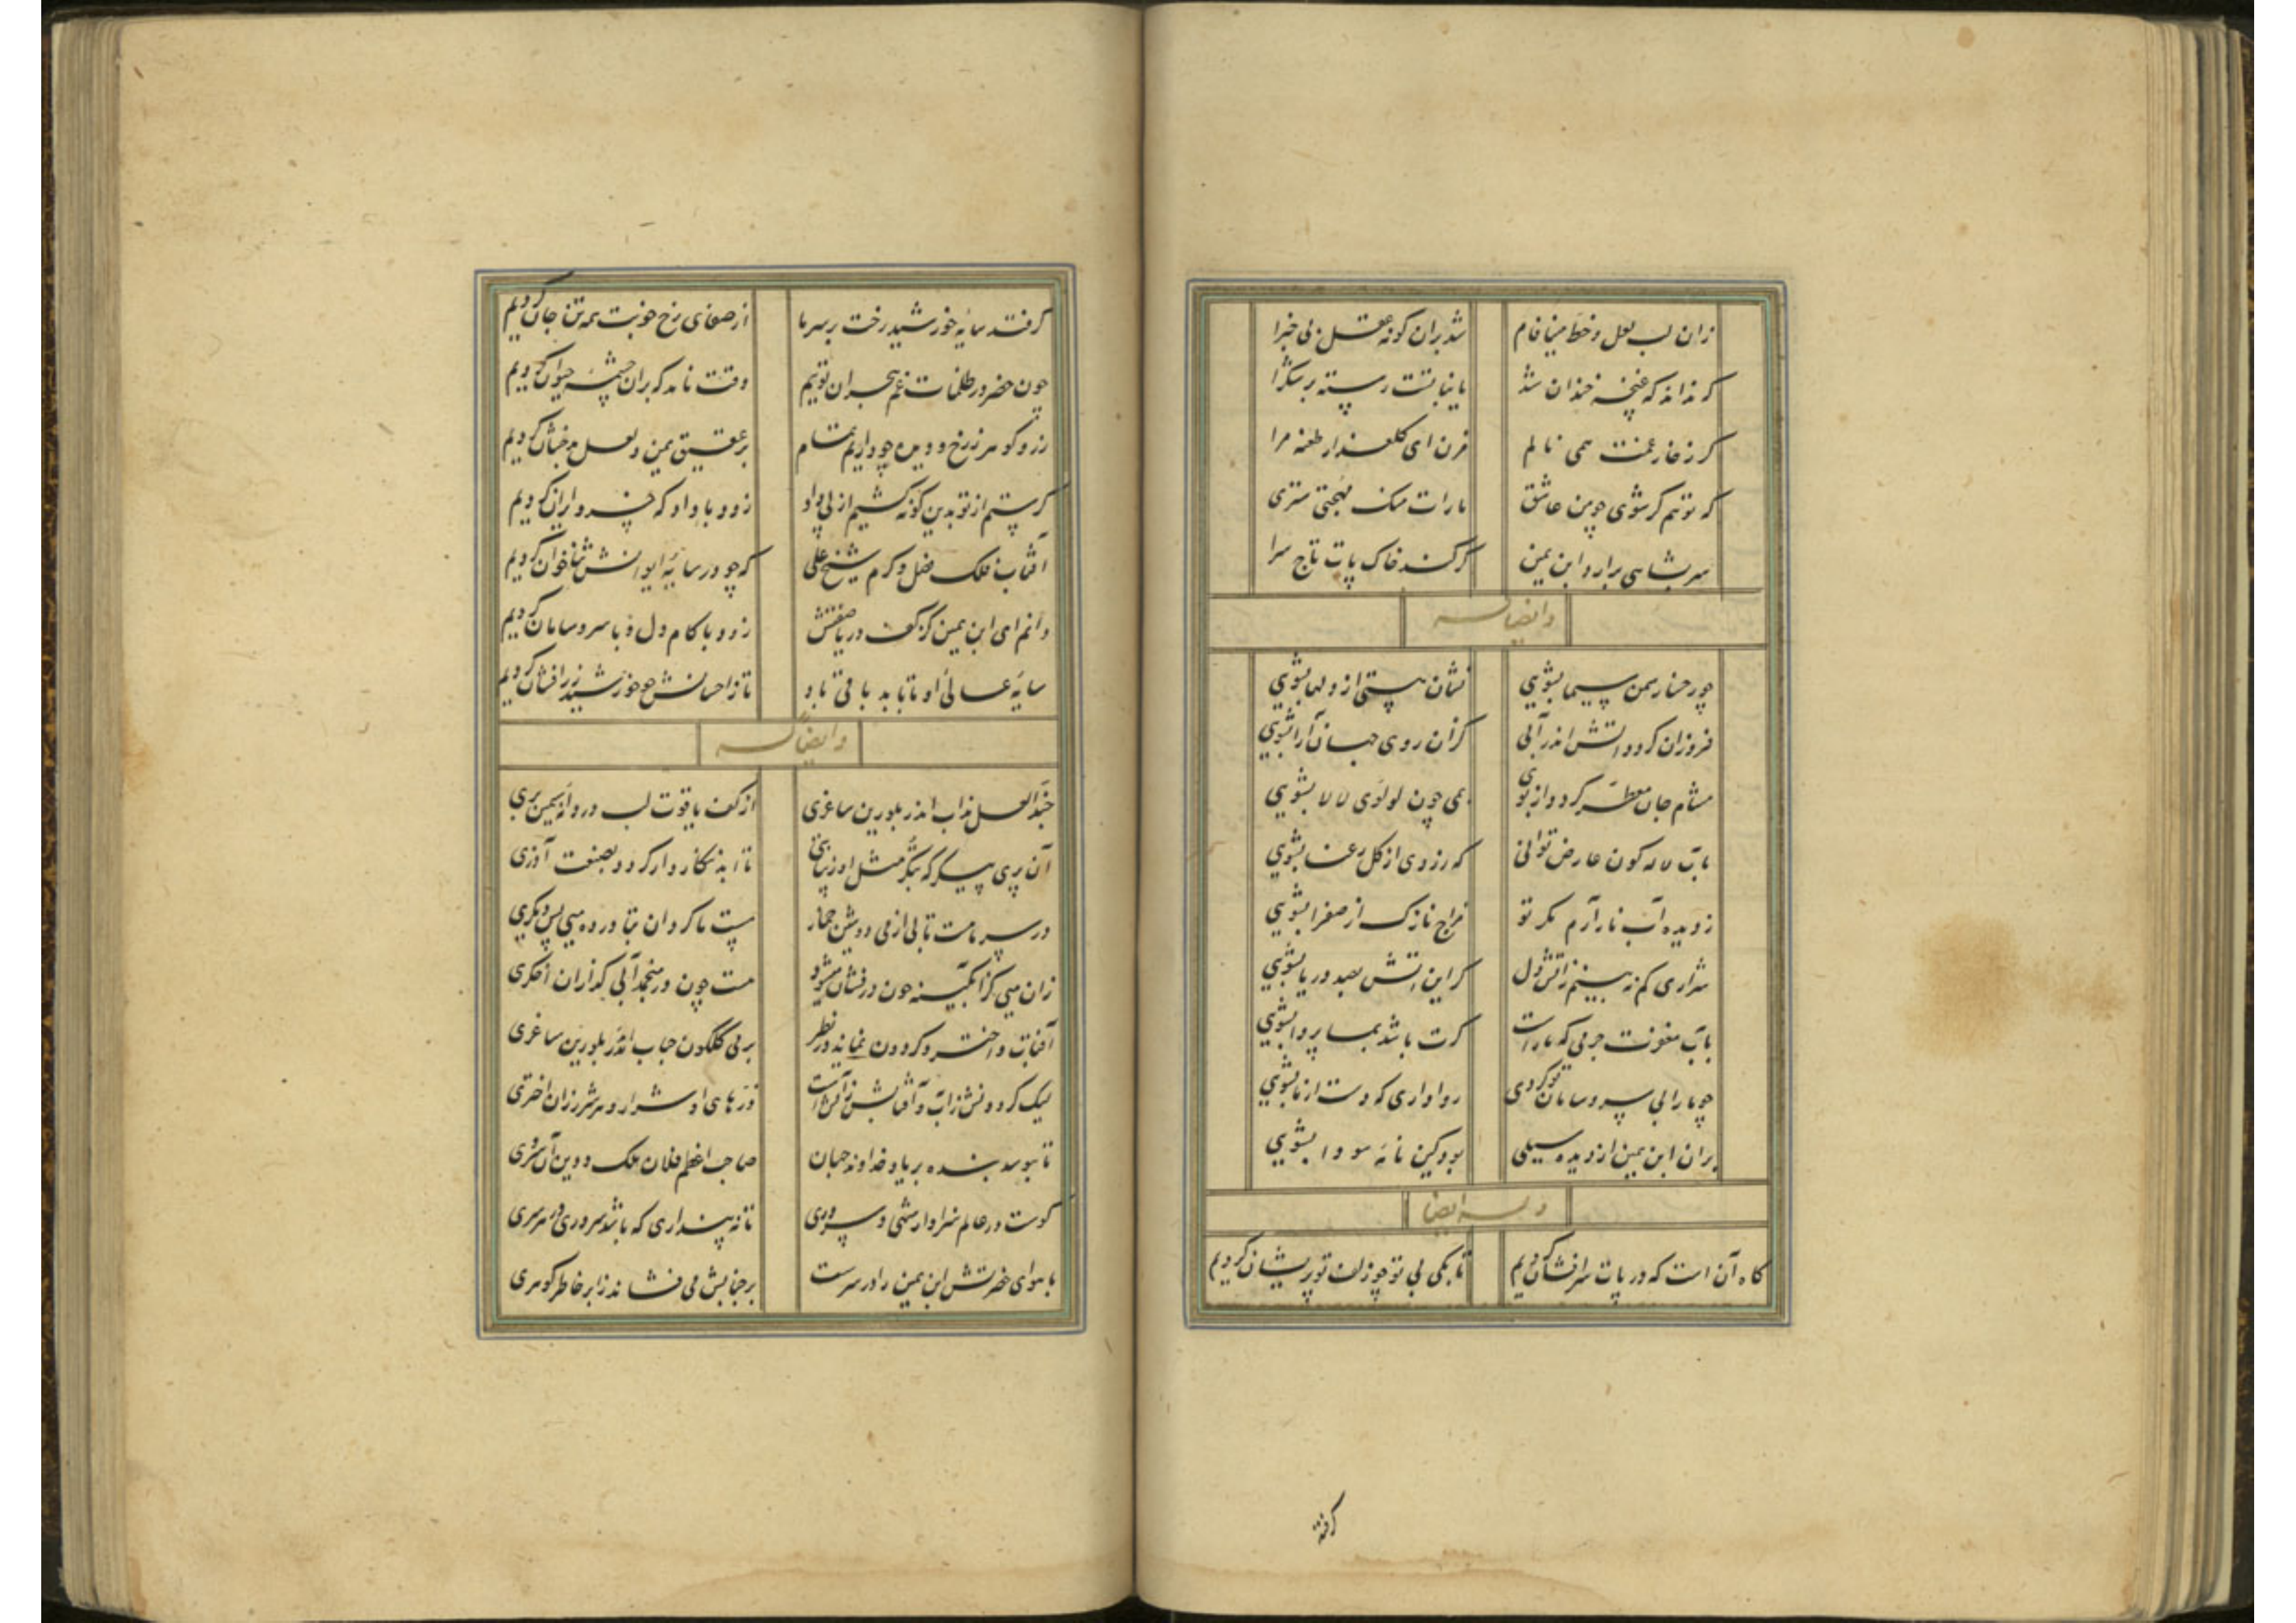 زان لب لعل و خط مینا فام شد بران کونه عقل بی خبرا
کر نداند که غنچه خندان شد یا نباتت رسته بر شکرا
کر ز خار غمت همی نالم مزن ای کلعذار طعنه مرا
که توهم کر شوی چو من عاشق
سر بشاهی برارد ابن یمین کر کند خاک پات تاج سرا
وایضا له
چو رخسار سمن سیما بشویی نشان هستی از دلها بشویی
فروزان کردد آتش اندر آبی کزان روی جهان آرا بشویی
مشام جان معطر کردد از بوی همی چون لولوی لالا بشویی
بآب لاله کون عارض توانی که زردی از کل رعنا بشویی
ز دیده آب نار آرم مکر تو مزاج نازک از صفرا بشویی
شراری کم نه بینم ز آتش دل کر این آتش بصد دریا بشویی
بآب مغفرت جرمی که ماراست کرت باشد بما پروا بشویی
چو مارا بی سر و سامان تو کردی روا داری که دست از ما بشویی
بران ابن یمین از دیده سیلی بود کین نامه سودا بشویی
وله ایضا
کاه آن است که در پات سر افشان کردیم تا بکی بی تو چو زلف تو پریشان کردیم
کرفته
کرفتد سایه خورشید رخت بر سر ما از صفای رخ خوبت همه تن جان کردیم
چون خضر در ظلمات غم هجران توئیم وقت نامد که بران چشمه حیوان کردیم
زر و کوهر ز رخ و دیده چو داریم تمام بر عقیق یمن و لعل بدخشان کردیم
کر ستم از تو بدین کونه کشیم از پی داد زود با داد که خسرو ایران کردیم
آفتاب فلک فضل و کرم شیخ علی که چو در سایه ایوانش ثناخوان کردیم
دانم ای ابن یمین کز کف دریا صفتش زود با کام دل و با سر و سامان کردیم
سایه عالی او تا بابد باقی باد تا ز احسانش چو خورشید زرافشان کردیم
وایضا له
حبذا لعل مذاب اندر بلورین ساغری از کف یاقوت لب دردانه سیمین بری
آن پری پیکر که بتکر مثل او زیبا بتی تا ابد نتکارد ار کردد بصنعت آزری
در سر مامست تا بی از می دوشین خمار هست ما کردان بتا در ده میی پس دیکری
زان میی کز آبکینه چون درفشان میشود هست چون در منجمد آبی کدازان اخکری
آفتاب و اختر و کردون نماید در نظر بر می کلکون حباب اندر بلورین ساغری
لیک کردونش ز آب و آفتابش ز آتش است ذرهای او شرار و هر شرر زان اختری
تا ببوسد بنده بر یاد خداوند جهان صاحب اعظم فلان ملک و دین آن سروری
کوست در عالم سزاوار شهی و سروری تا نه پنداری که باشد سروری در هر سری
با هوای حضرتش ابن یمین را در سرست بر جنابش می فشاند ز ابر خاطر کوهری